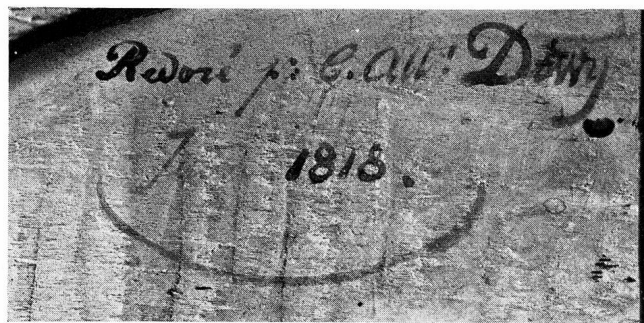 Redoré p: C. Alb! Déwy
1818.